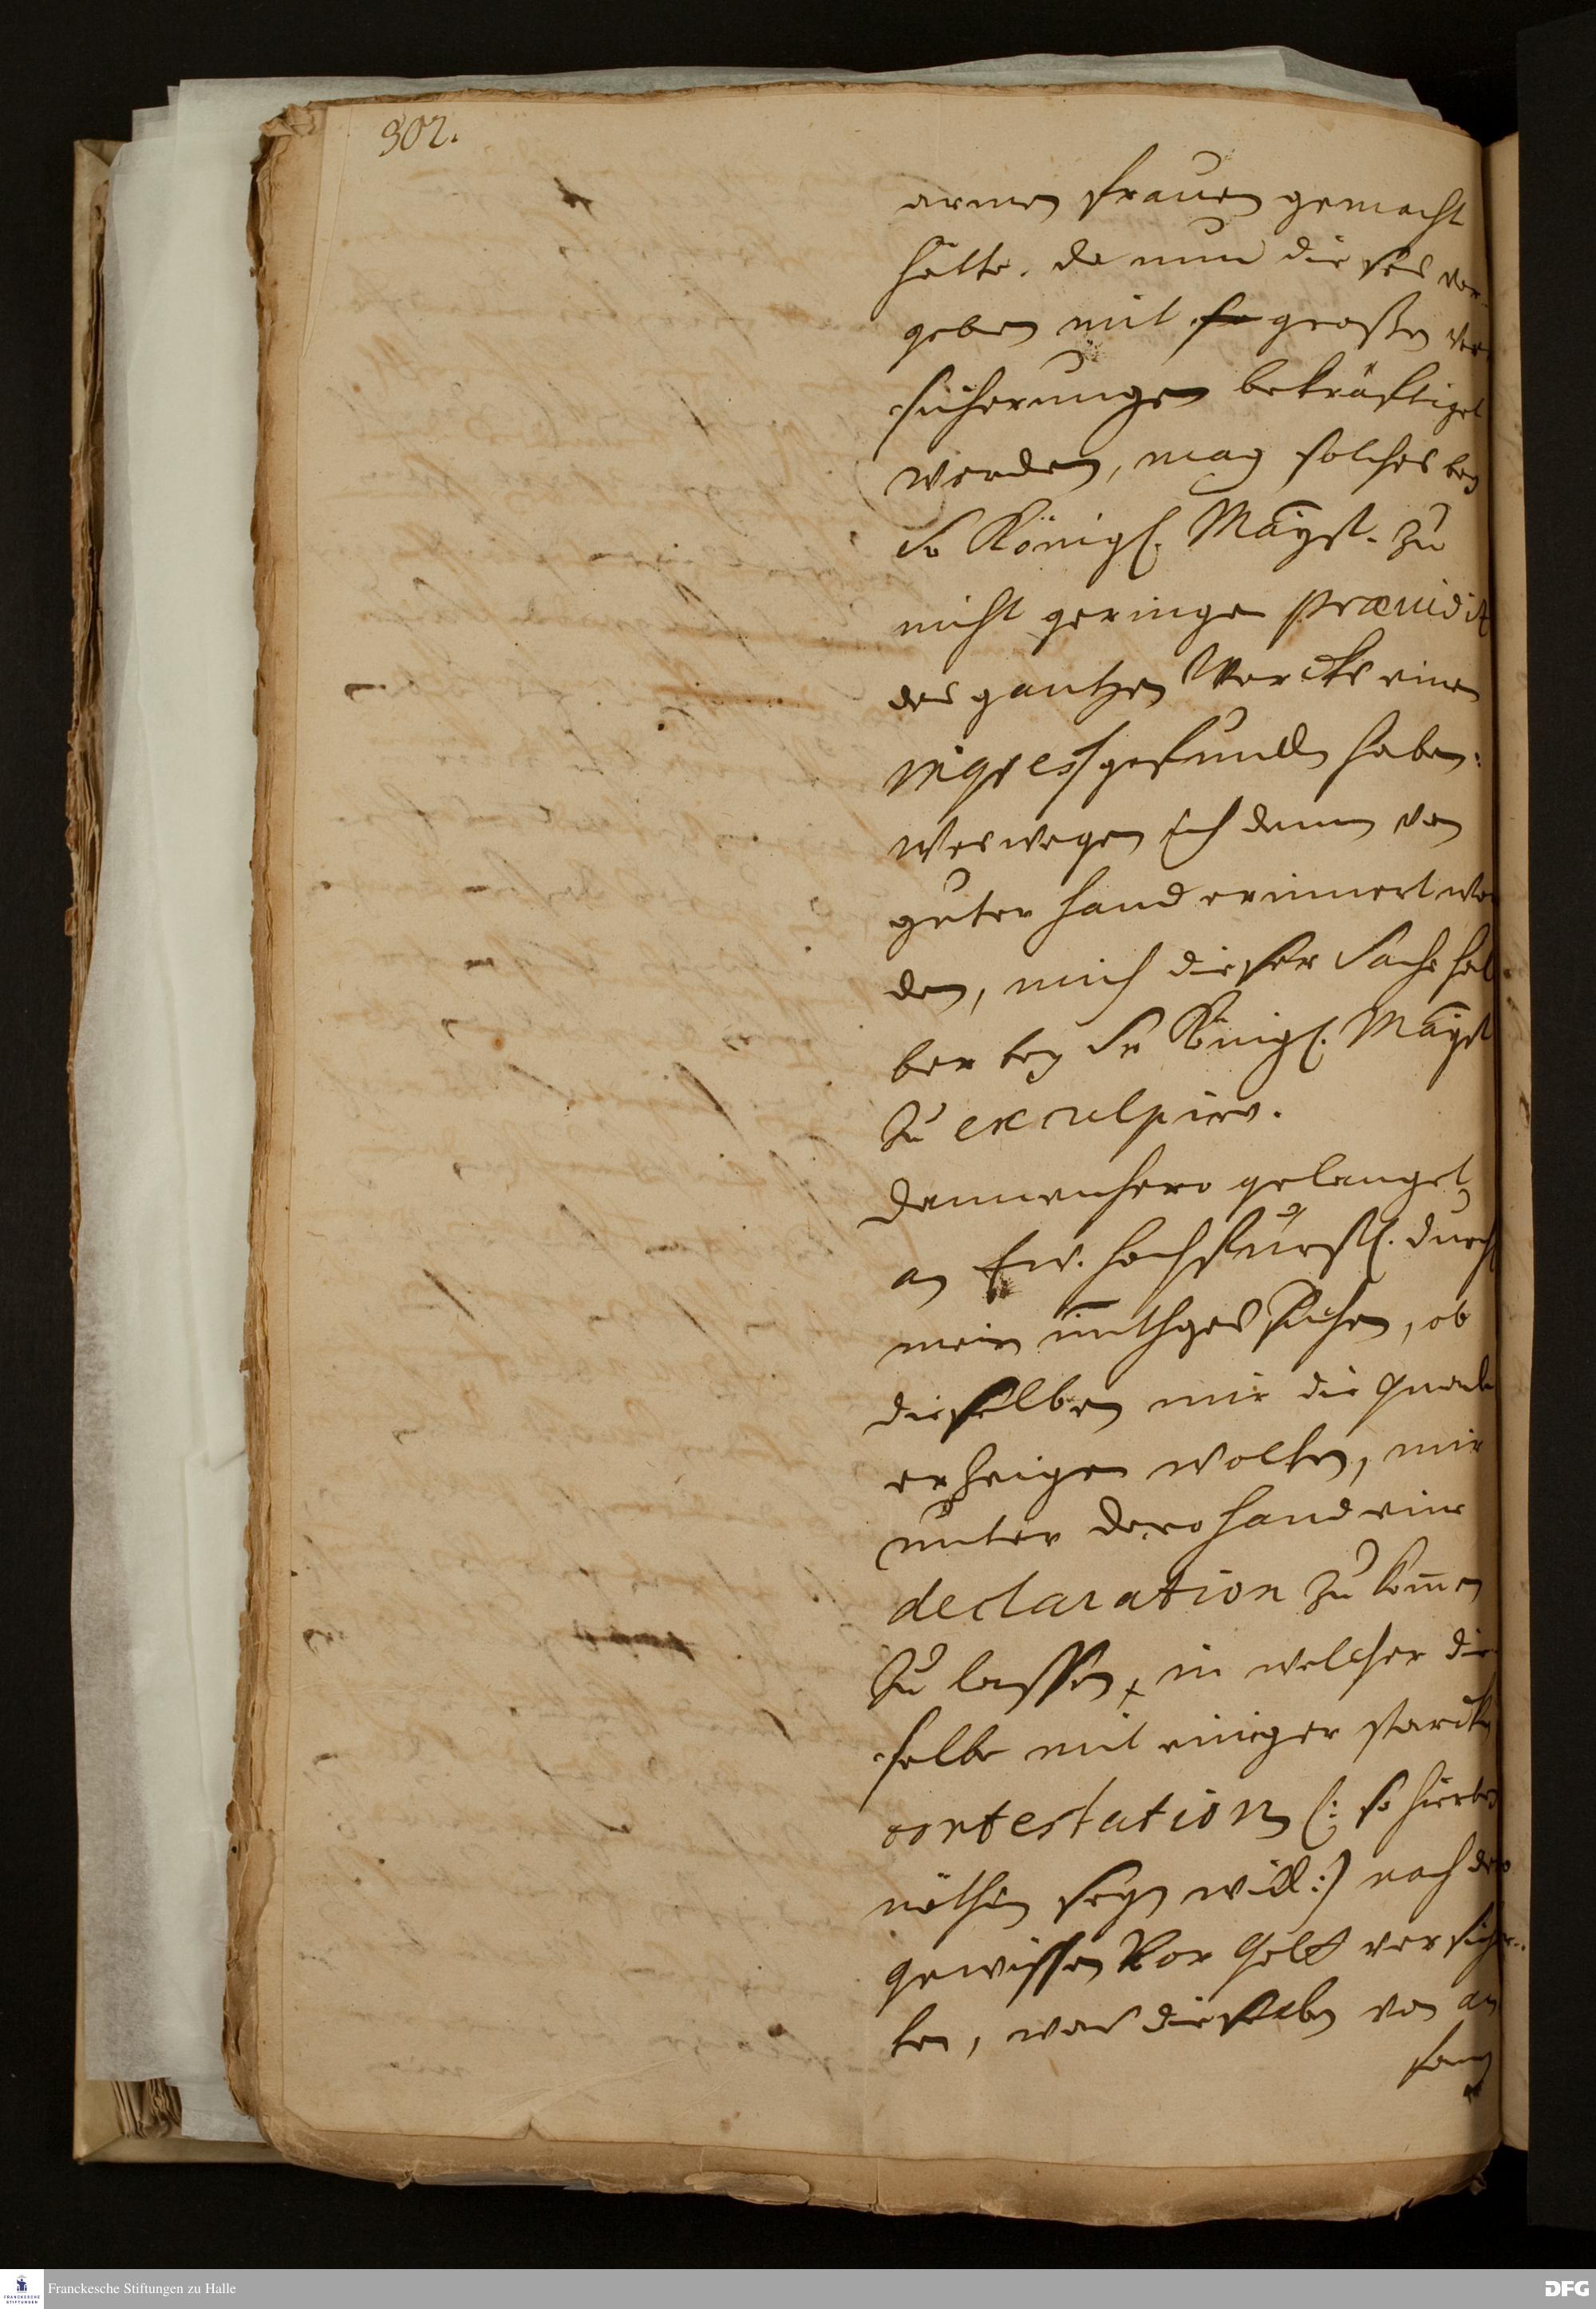 302.
armen frauen gemacht
hätte. da nun dieses vor-
geben mit so großen ver
sicherungen bekräfftiget
worden, mag solches bey
Sr Königl. Mayst. zu
nicht geringen præiudiz
des gantzen Wercks einen
ingress gefunden haben:
Weswegen ich denn von
guter hand erinnert wor
den, mich dieser Sache hal
ber bey Sr Königl. Mayst
zu exculpiren.
Dannenhero gelanget
an Ew. Hochfürstl. Durchl
mein unthges suchen, ob
dieselben mir die Gnade
erzeigen wolten, mir
unter dero hand eine
declaration zu kom̄en
zu lassen, in welcher die
selbe mit einiger starcken
contestation (: so hierbey
nöthig seyn will:) nach dero
gewissen vor Gott versicher-
ten, was dieselben von an
fang
Franckesche Stiftungen zu Halle
FRANCKESCHE STIFTUNGEN
DFG